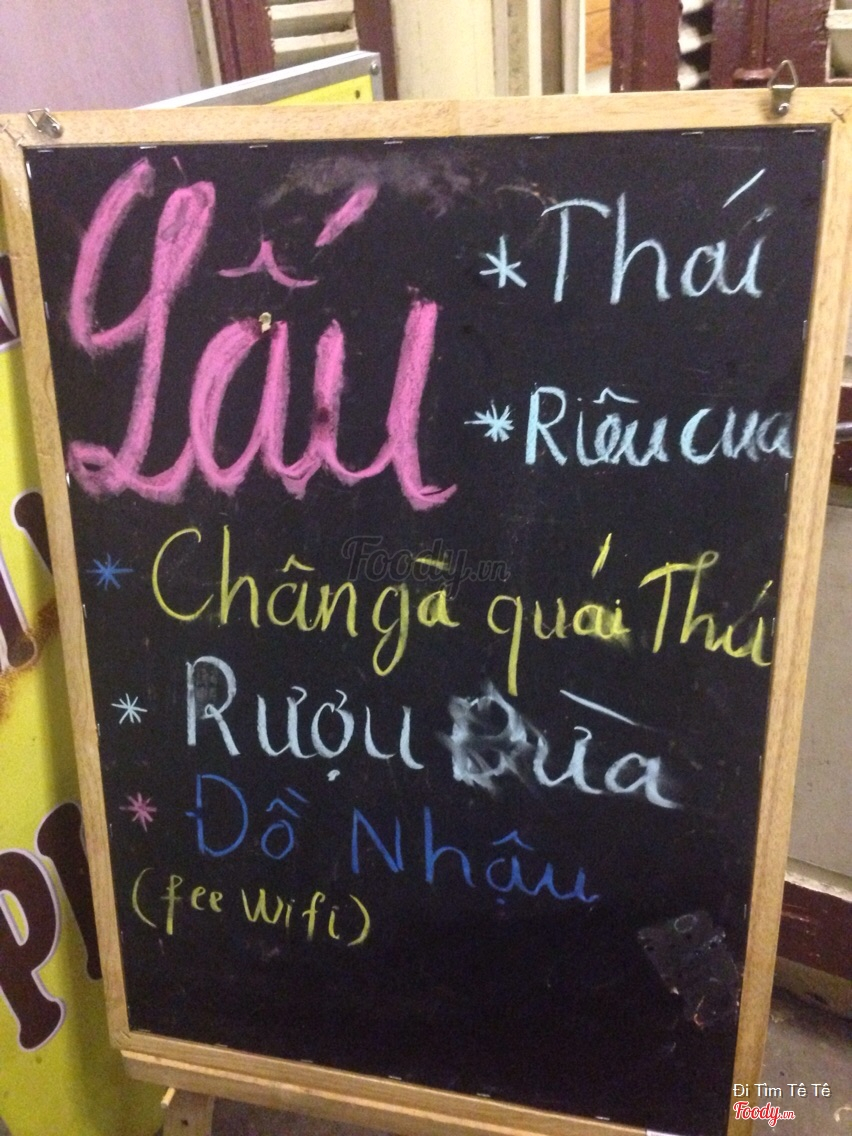 Lấu
* Thái
* Riêu cua
* Chân gà quái Thú
* Rượu Dừa
* Đồ Nhậu
(fee wifi)
Foody.vn
Đi Tìm Tê Tê
Foody.vn